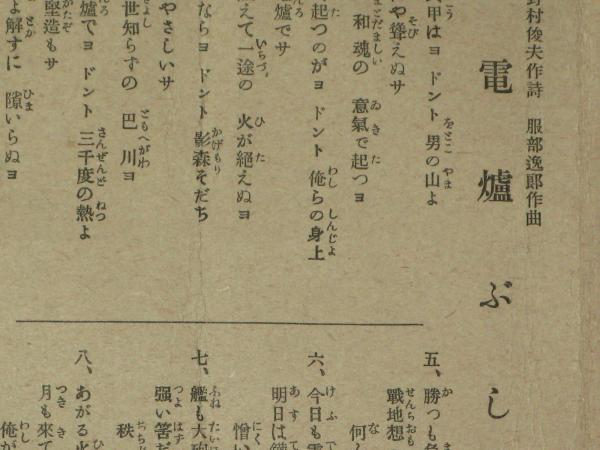 野村俊夫作詩　服部逸郎作曲
電爐ぶし
甲はヨ　ドント　男の山よ
や聳えぬサ
和魂の　意氣で起つヨ
起つのがヨ　ドント　俺らの身上
爐でサ
えて一途の　火が絕えぬヨ
ならヨ　ドント　影森そだち
やさしいサ
世知らずの　巴川ヨ
爐でヨ　ドント　三千度の熱よ
堅造もサ
よ解すに　隙いらぬヨ
五、勝つも
戰地想
何
六、今日も
明日は
憎い
七、艦も大砲
强い筈だ
秩
八、あがる火
月も來て
俺が